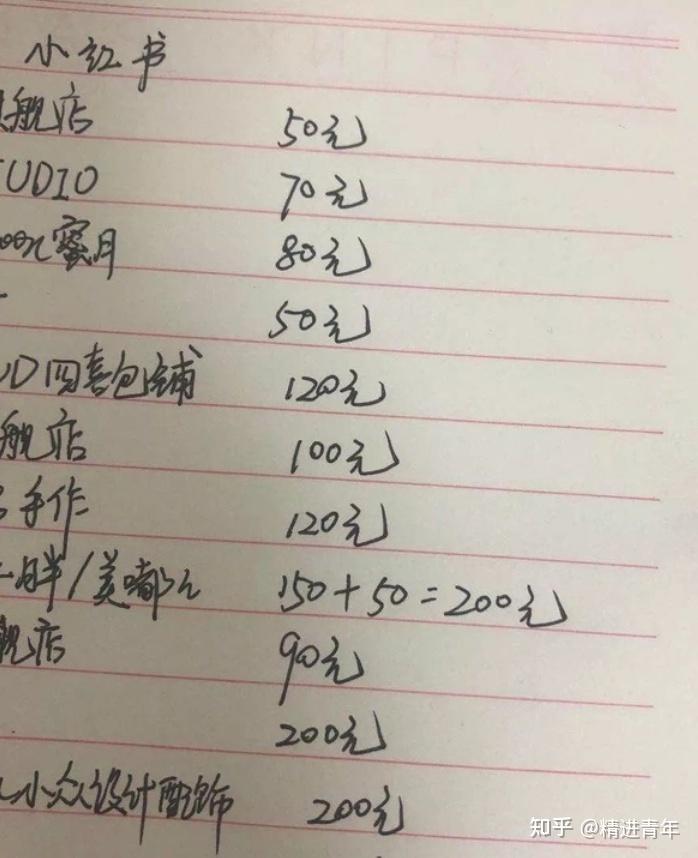 小红书
舰店 50元
UDIO 70元
蜜月 80元
50元
D四喜包铺 120元
舰店 100元
手作 120元
胖/美嘟 150+50=200元
舰店 90元
200元
小众设计配饰 200元
知乎 @精进青年